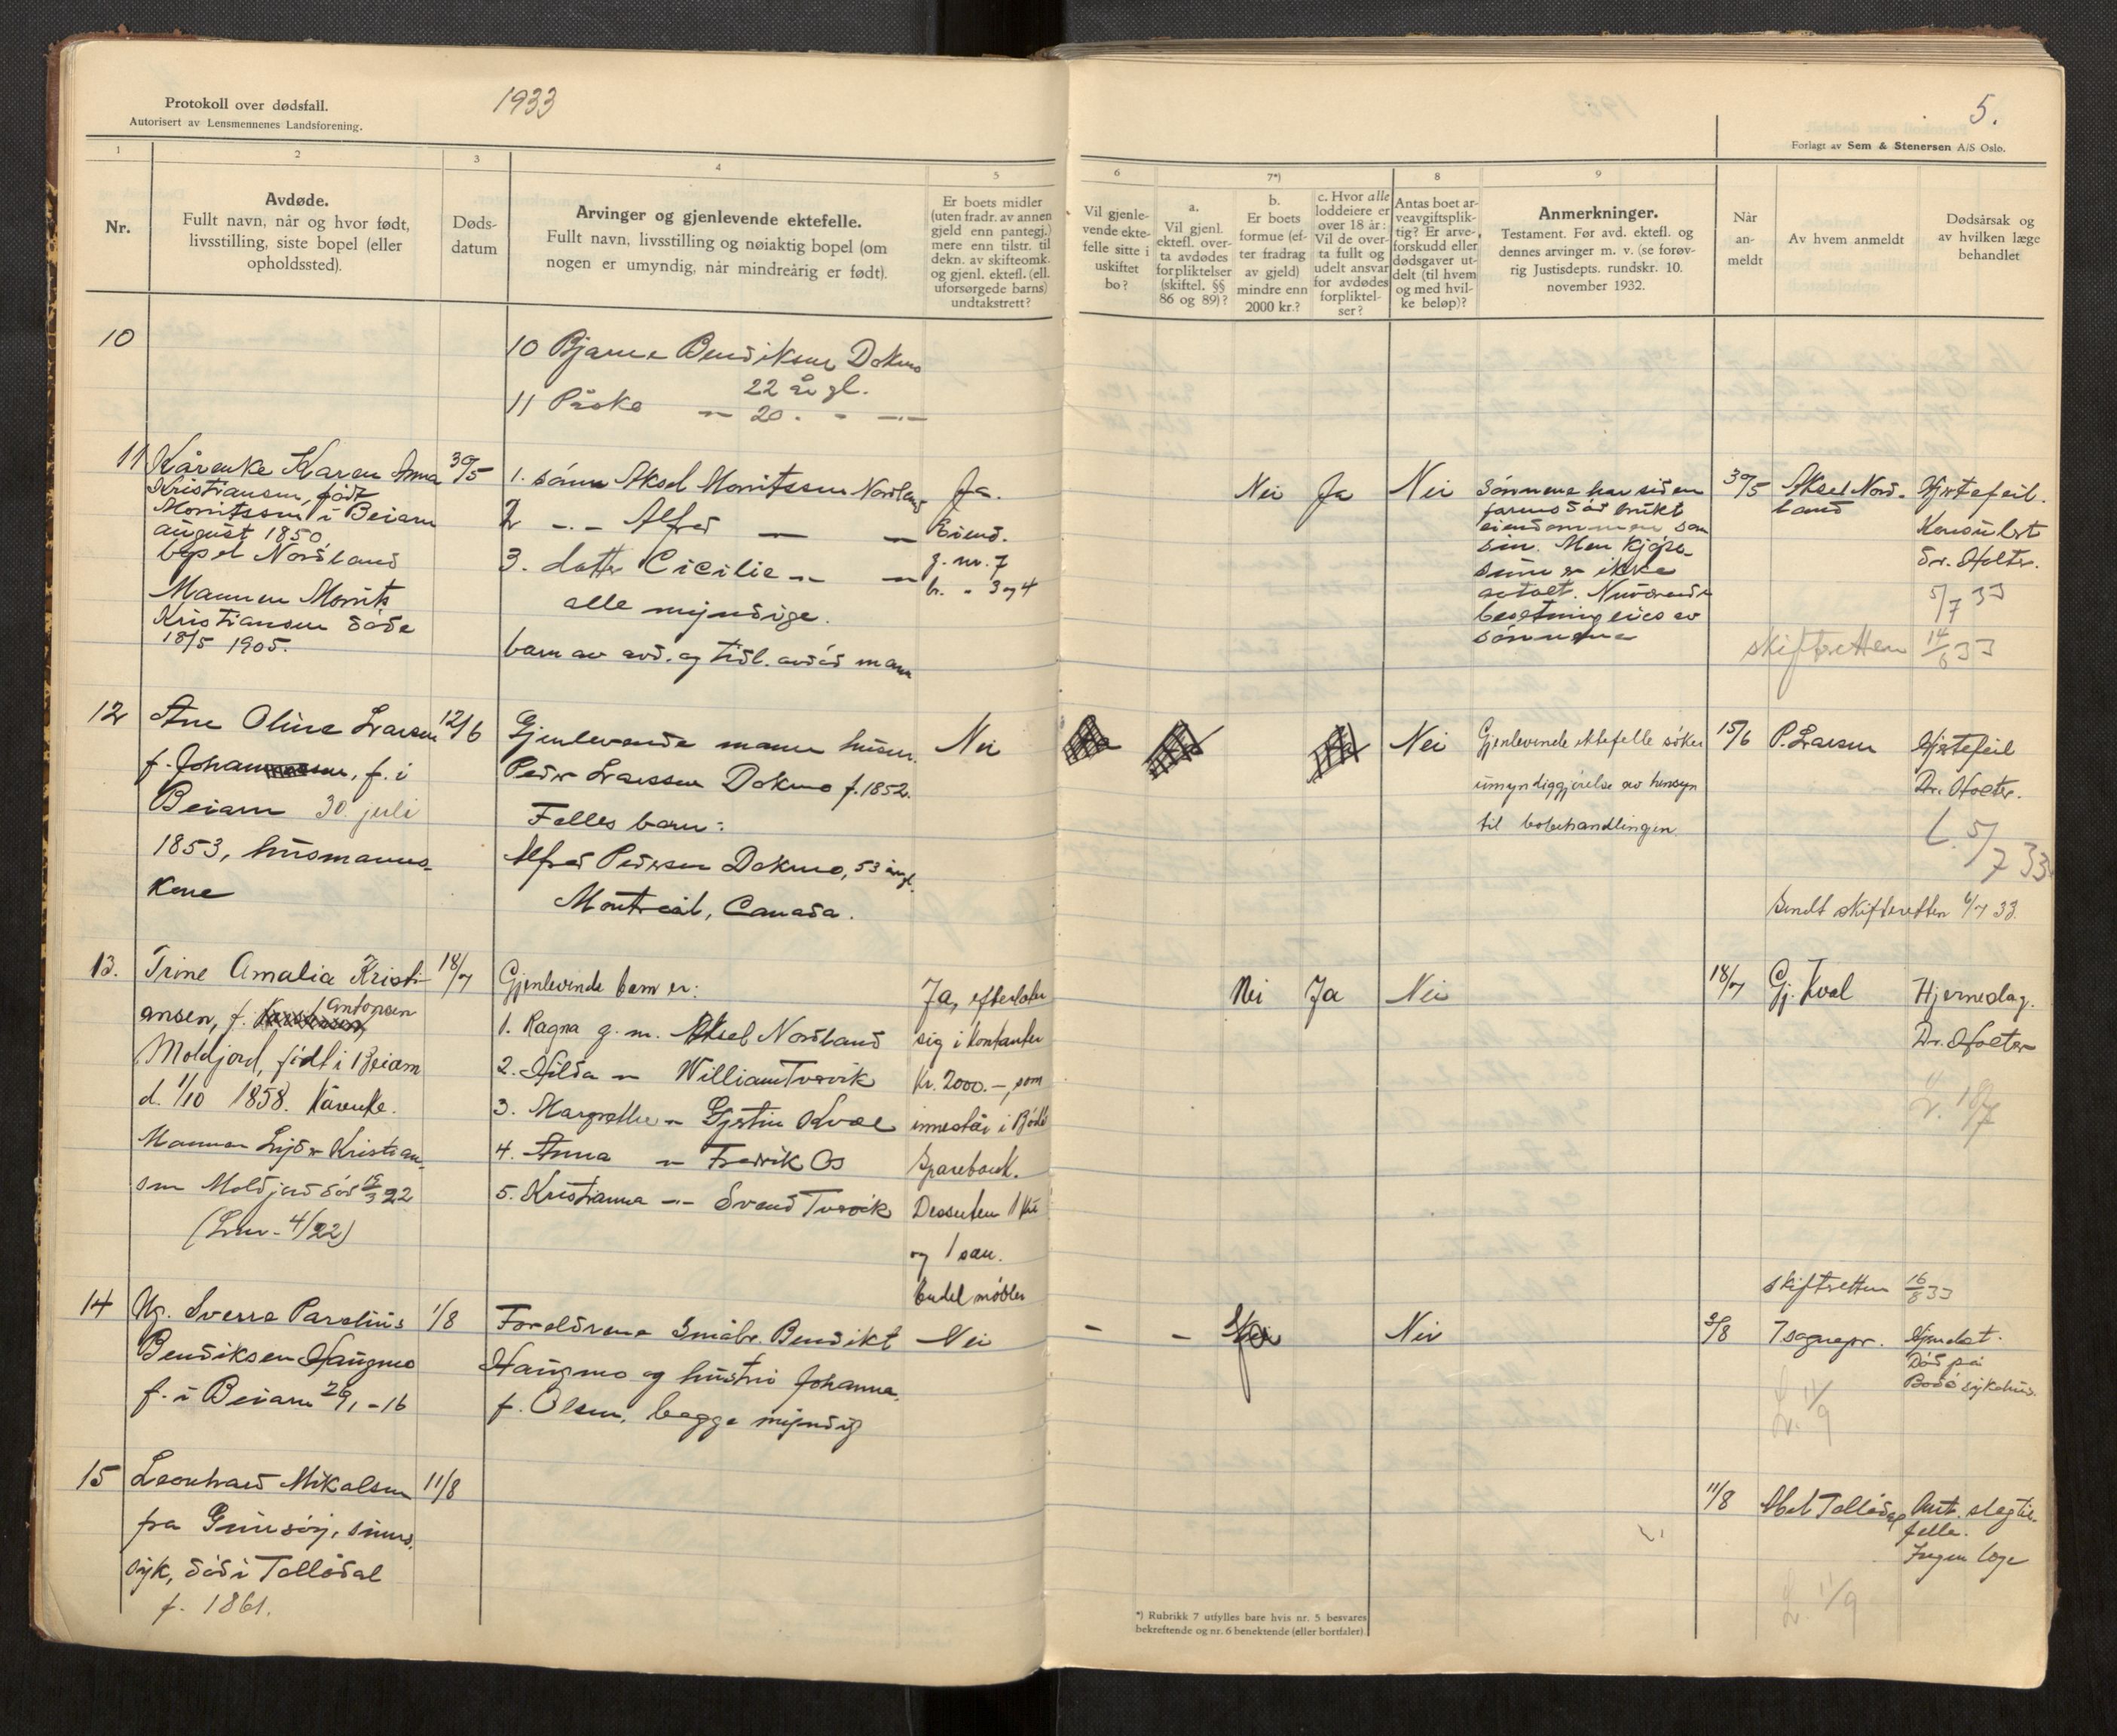 Protokoll over dødsfall.
Autorisert av Lensmennenes Landsforening.
1933
1
2
3
4
5
Nr.
Avdøde.
Fullt navn, når og hvor født,
livsstilling, siste bopel (eller
opholdssted).
Døds-
datum
Arvinger og gjenlevende ektefelle.
Fullt navn, livsstilling og nøiaktig bopel (om
nogen er umyndig, når mindreårig er født).
Er boets midler
(uten fradr. av annen
gjeld enn pantegj.)
mere enn tilstr. til
dekn. av skifteomk.
og gjenl. ektefl. (ell.
uforsørgede barns)
undtakstrett?
10
10 Bjarne Bendiksen Dokmo
22 år gl.
11 Påske — " — 20 . - — " —
11 Kårenke Karen Anna
Kristiansen, født
Moritssen i Beiarn
august 1850
bopel Nordland
Mannen Morits
Kristiansen døde
18/5 1905.
30/5
1. sønn Aksel Moritssen Nordland
2 - . - Alfred — —
3. datter Cicilie - " - — " —
alle myndige.
barn av avd. og tidl. avdød mann
Ja.
Eiend.
g. nr. 7
br. - 3 og 4
12
Ane Oline Larsen
f. Johan , f. i
Beiarn 30. juli
1853, husmanns-
kone
12/6
Gjenlevende mann husm.
Peder Larssen Dokmo f. 1852.
Felles barn:
Alfred Pedersen Dokmo, 53 år gl.
Montreal, Canada.
Nei
13.
Trine Amalia Kristi-
ansen, f. Antonsen
Moldjord, født i Beiarn
d. 1/10 1858. Kårenke.
Mannen Kristian-
sen Moldjord død 22
(Lnr. 4/22)
18/7
Gjenlevende barn er:
1. Ragna g. m. Aksel Nordland
2. Hilda - " - William Tvervik
3. Margrethe - " - Gjertin Kvæl
4. Anna - " - Fredrik Os
5. Kristianna - " - Svend Tvervik
Ja, efterlater
sig i kontanter
Kr. 2000.-, som
innestår i Bodø
Sparebank.
Dessuten 1 ku
og 1 sau.
Endel møbler
14
Ug. Sverre Parelius
Bendiksen Haugmo
f. i Beiarn 29/1 - 16
1/8
Foreldrene småbr. Bendikt
Haugmo og hustru Johanna,
f. Olsen, begge myndig
Nei
15
Leonhard Mikalsen
fra Gimsøy, sinns-
syk, død i Tollådal
f. 1861.
11/8
5.
Forlagt av Sem & Stenersen A/S Oslo.
6
7*)
8
9
Vil gjenle-
vende ekte-
felle sitte i
uskiftet
bo?
a.
Vil gjenl.
ektefl. over-
ta avdødes
forpliktelser
(skiftel. §§
86 og 89)?
b.
Er boets
formue (ef-
ter fradrag
av gjeld)
mindre enn
2000 kr.?
c. Hvor alle
loddeiere er
over 18 år:
Vil de over-
ta fullt og
udelt ansvar
for avdødes
forpliktel-
ser?
Antas boet ar-
veavgiftsplik-
tig? Er arve-
forskudd eller
dødsgaver ut-
delt (til hvem
og med hvil-
ke beløp)?
Anmerkninger.
Testament. Før avd. ektefl. og
dennes arvinger m. v. (se forøv-
rig Justisdepts. rundskr. 10.
november 1932.
Når
an-
meldt
Av hvem anmeldt
Dødsårsak og
av hvilken læge
behandlet
Nei
Ja
Nei
Sønnene har siden
farens død brukt
eiendommen som
sin. Men kjøpe-
sum er ikke
avtalt. Nuværende
besetning eies av
sønnene
30/5
Aksel Nord-
land
Hjertefeil.
Konsultert
dr. Holter.
5/7 33
skifteretten 14/6 33
Nei
Gjenlevende ektefelle søker
umyndiggjørelse av hensyn
til bobehandlingen.
15/6
P. Larsen
Hjertefeil
Dr. Holter.
L. 5/7 33
Sendt skifteretten 6/7 33.
Nei
Ja
Nei
18/7
Gj. Kvæl
Hjerneslag.
Dr. Holter
L. 18/7
skifteretten 16/8 33
-
-
Ja
Nei
2/8
Sognepr.
Død på
Bodø sykehus.
L. 11/9
11/8
Abel Tollådal
Ant. slagtil-
felle.
Ingen læge
L. 11/9
*) Rubrikk 7 utfylles bare hvis nr. 5 besvares
bekreftende og nr. 6 benektende (eller bortfaller).